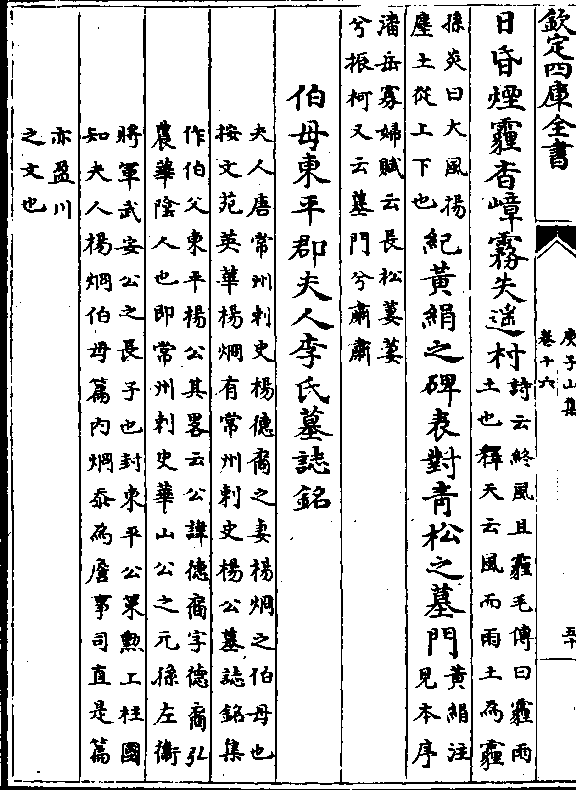 欽定四庫全書
庾子山集
卷十六
五十
日昏煙霾杳嶂霧失遥村詩云終風且霾毛傳曰霾雨
土也釋天云風而雨土為霾
孫炎曰大風揚
塵土從上下也紀黃絹之碑表對青松之墓門黃絹注
見本序
潘岳寡婦賦云長松萋萋
兮振柯又云墓門兮肅肅
伯母東平郡夫人李氏墓誌銘
夫人唐常州刺史楊德裔之妻楊炯之伯母也
按文苑英華楊炯有常州刺史楊公墓誌銘集
作伯父東平楊公其畧云公諱德裔字德裔弘
農華陰人也即常州刺史華山公之元孫左衛
將軍武安公之長子也封東平公䇿勲上柱國
知夫人楊炯伯母篇内炯忝為詹事司直是篇
亦盈川
之文也